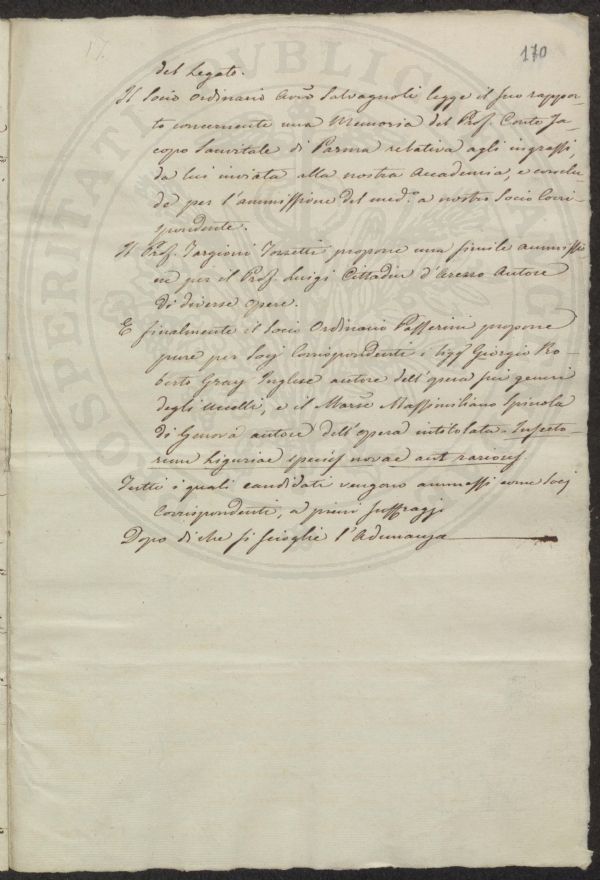 170
del Legato.
Il Socio Ordinario Avv. Salvagnoli legge il suo rappor-
to concernente una Memoria del Prof. Conte Ja-
copo Sanvitale di Parma relativa agli ingrassi,
da lui inviata alla nostra Accademia, e conclu-
de per l'ammissione del med.º a nostro Socio Corri-
spondente.
Il Prof. Targioni Tozzetti propone una simile ammissio
ne per il Prof. Luigi Cittadini d'Arezzo Autore
di diverse opere.
E finalmente il Socio Ordinario Passerini propone
pure per Socj Corrispondente i Sigg.i Giorgio Ro-
berto Gray Inglese autore dell'opera sui generi
degli Uccelli, e il March.e Massimiliano Spinola
di Genova autore dell'opera intitolata - Insecto-
rum Liguriae species novae aut rariores.
Tutti i quali candidati vengono ammessi come Socj
Corrispondenti, a pieni suffragj.
Dopo di che si scioglie l'Adunanza
PROSPERITATI PUBLICAE